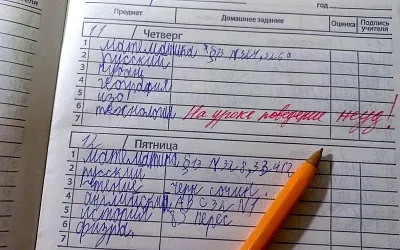 год
Предмет Домашнее задание Оценка Подпись учителя
11 Четверг
1 математика §13 N324,
2 русский
3
4 география
5 изо
6 технология На уроке поведение неуд!
7
12 Пятница
1 математика §13 N328,
2 русский
3 чтение черн сочин.
4 английский
5 история §5 перес
6 физра
7